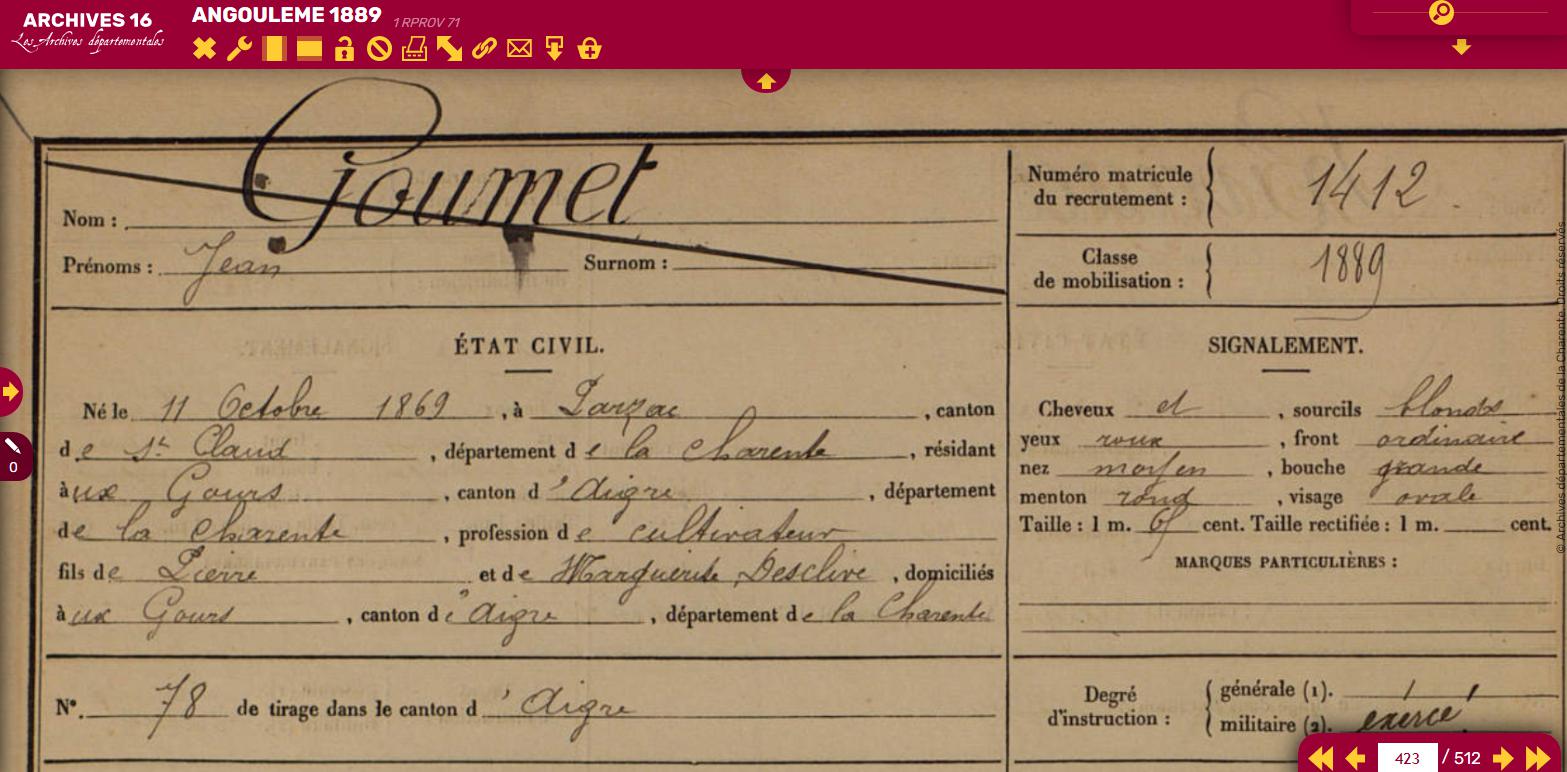 ARCHIVES 16
Les Archives départementales
ANGOULEME 1889 1 RPROV 71
Nom : Goumet
Prénoms : Jean Surnom :
Numéro matricule du recrutement : 1412.
Classe de mobilisation : 1889
ÉTAT CIVIL.
Né le 11 Octobre 1869, à Parzac, canton
de St Claud, département de la Charente, résidant
àux Gours, canton d'Aigre, département
de la Charente, profession de cultivateur
fils de Pierre et de Marguerite Desclive, domiciliés
àux Gours, canton d'Aigre, département de la Charente
N° 78 de tirage dans le canton d'Aigre
SIGNALEMENT.
Cheveux et, sourcils blonds
yeux roux, front ordinaire
nez moyen, bouche grande
menton rond, visage ovale
Taille : 1 m. cent. Taille rectifiée : 1 m. cent.
MARQUES PARTICULIÈRES :
Degré d'instruction :
générale (1). 1
militaire (2). exercé
© Archives départementales de la Charente. Droits réservés
0
423 / 512